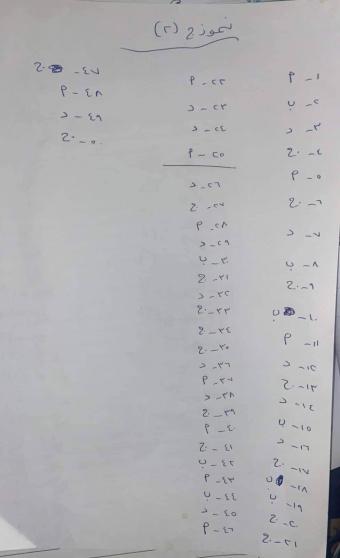 نموذج (٢)
١- م
٢- ب
٣- د
٤- ج
٥- م
٦- ج
٧- د
٨- ب
٩- ج
١٠- ب
١١- م
١٢- د
١٣- ج
١٤- د
١٥- ب
١٦- د
١٧- ج
١٨- ب
١٩- ب
٢٠- ج
٢١- ج
٢٢- م
٢٣- د
٢٤- د
٢٥- م
٢٦- د
٢٧- ج
٢٨- م
٢٩- د
٣٠- ب
٣١- ج
٣٢- د
٣٣- ج
٣٤- ج
٣٥- ج
٣٦- د
٣٧- م
٣٨- د
٣٩- ج
٤٠- م
٤١- ج
٤٢- ب
٤٣- م
٤٤- ب
٤٥- د
٤٦- م
٤٧- ج
٤٨- م
٤٩- د
٥٠- ج